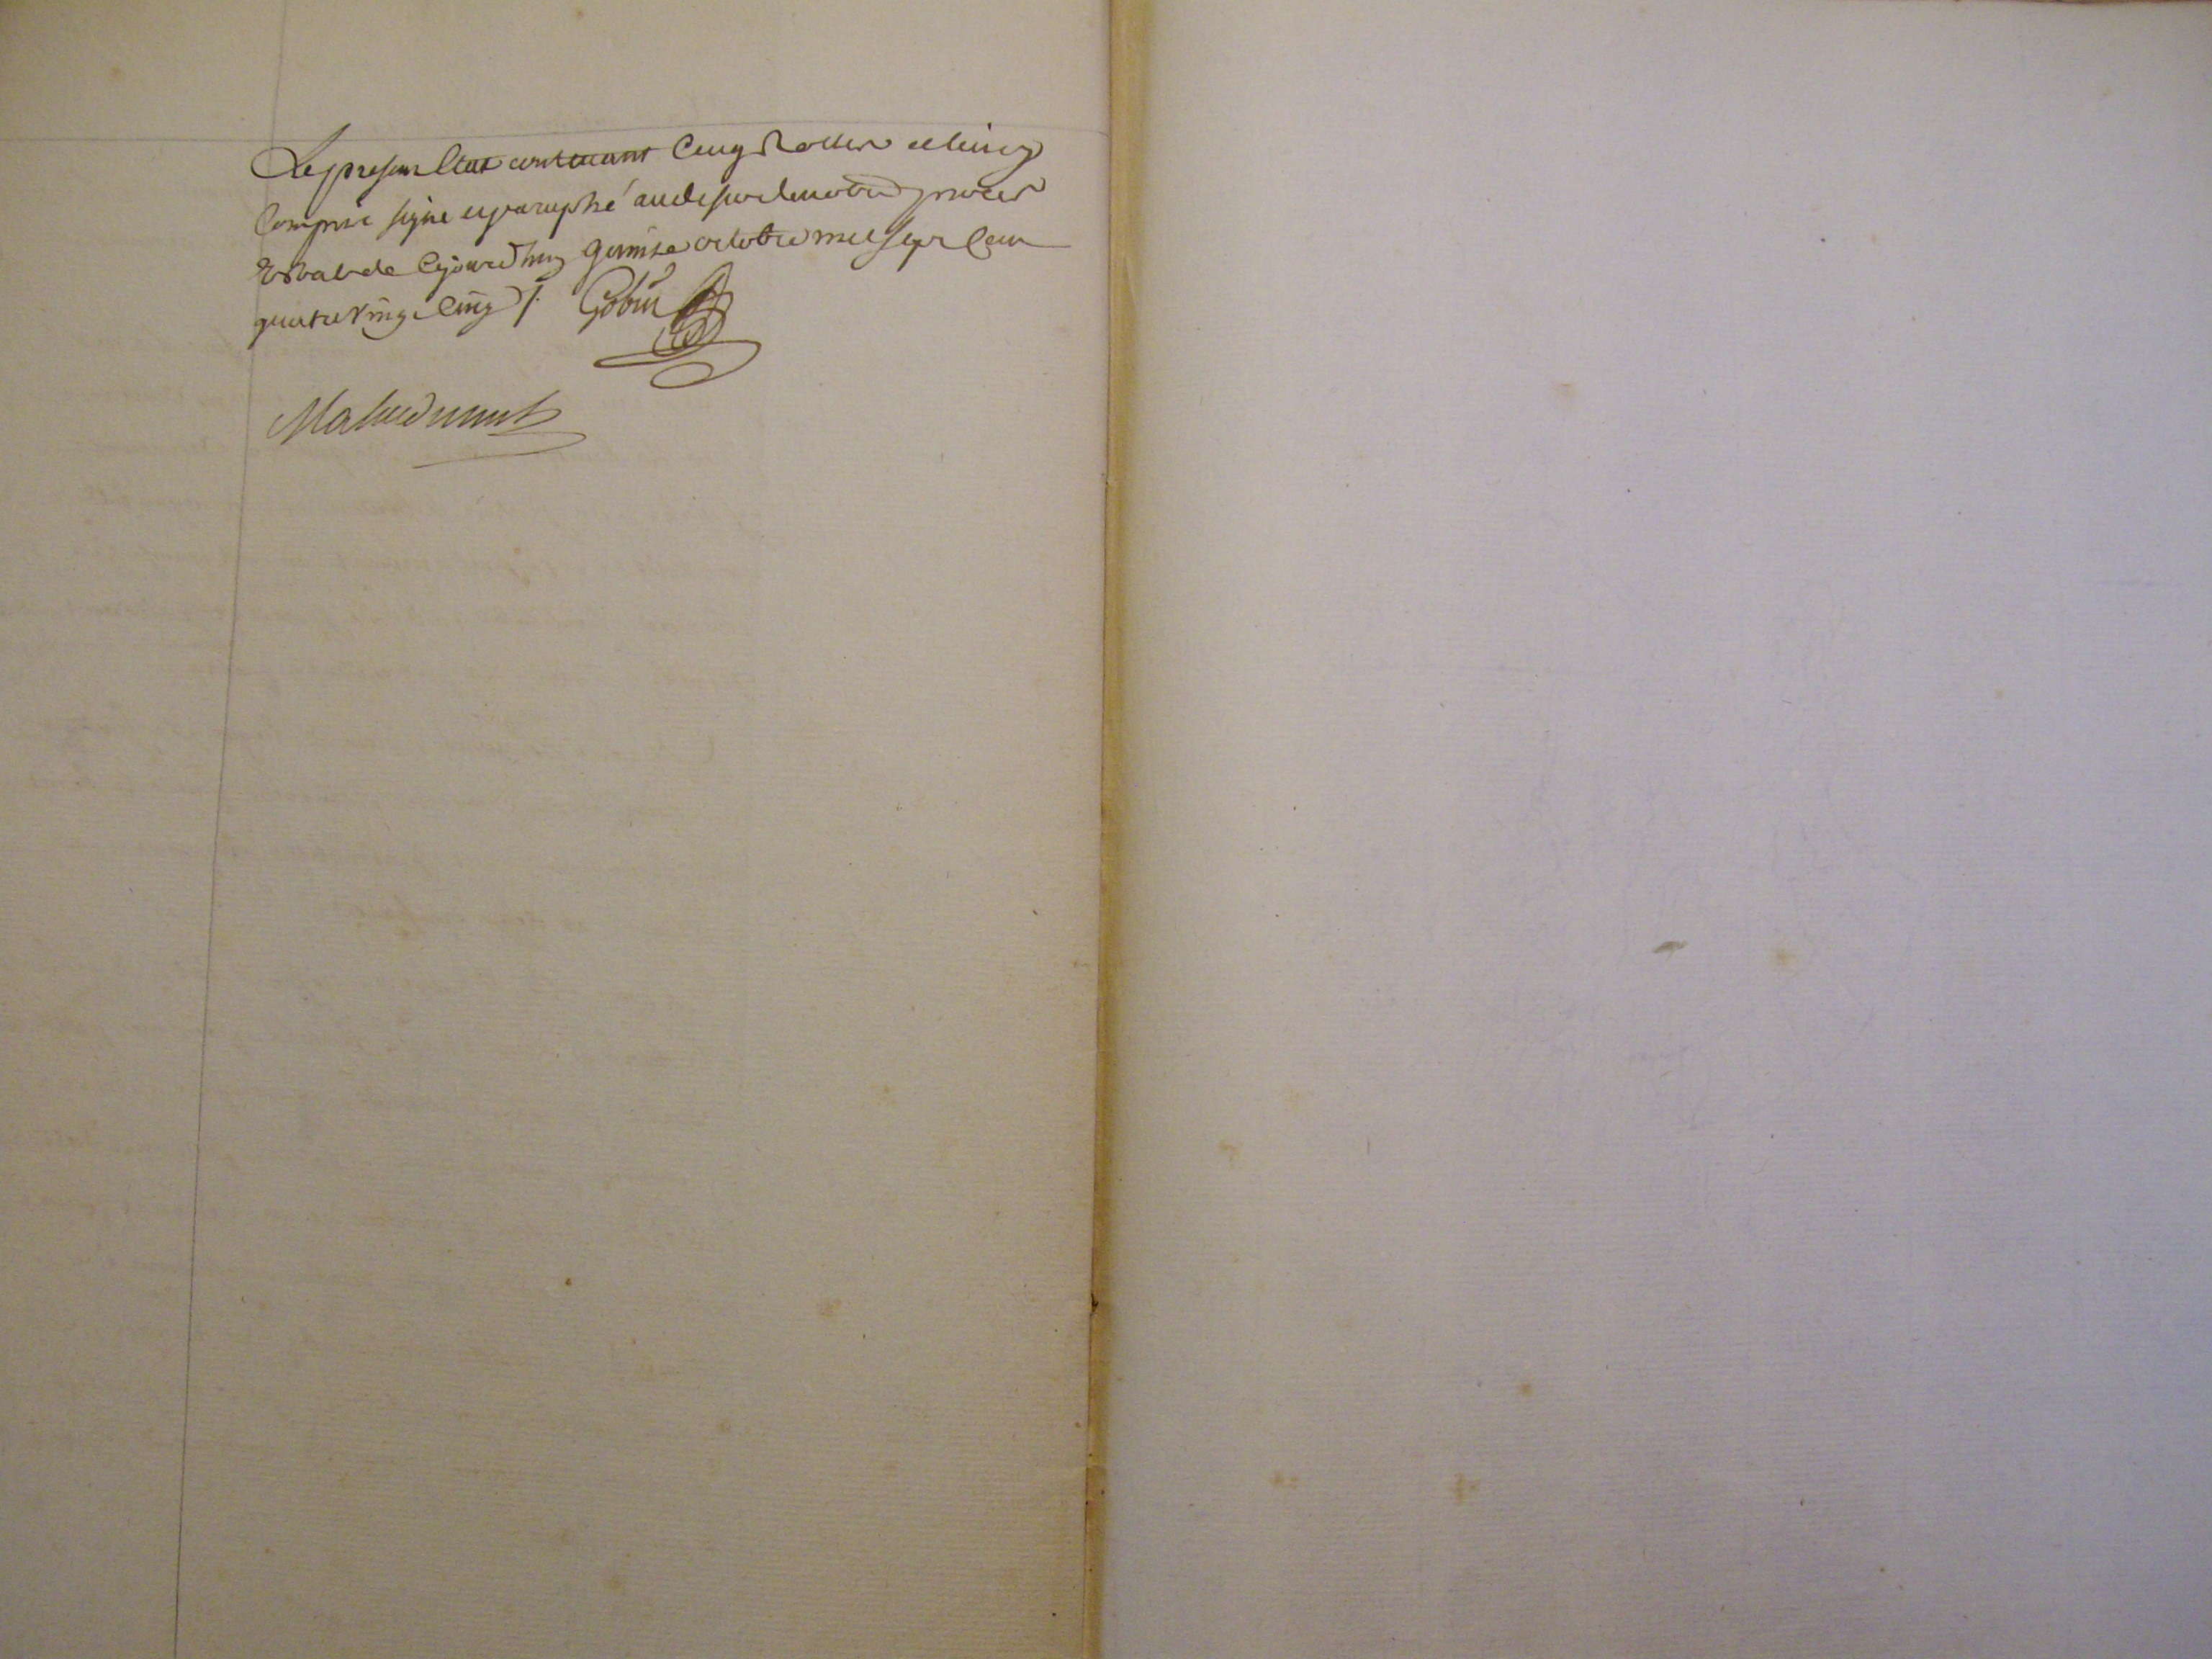 Le present Etat contenant cinq Rolles celuicy
Compris signe et paraphé au desir de notre proces
Verbal de cejourdhuy quinze octobre mil sept Cent
quatre Vingt Cinq /. Gobin